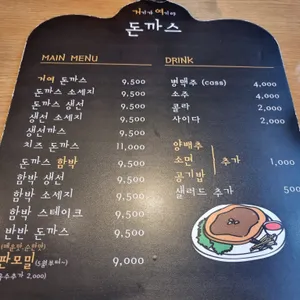 거기가 여기야
돈까스
MAIN MENU
거여 돈까스 9,500
돈까스 소세지 9,500
돈까스 생선 9,500
생선 소세지 9,500
생선까스 9,500
치즈 돈까스 11,000
돈까스 함박 9,500
함박 생선 9,500
함박 소세지 9,500
함박 스테이크 9,500
반반 돈까스 9,500
판모밀 9,000
추가 2,000)
DRINK
병맥주 (cass) 4,000
소주 4,000
콜라 2,000
사이다 2,000
양배추
소면
공기밥
추가 1,000
샐러드 추가 500